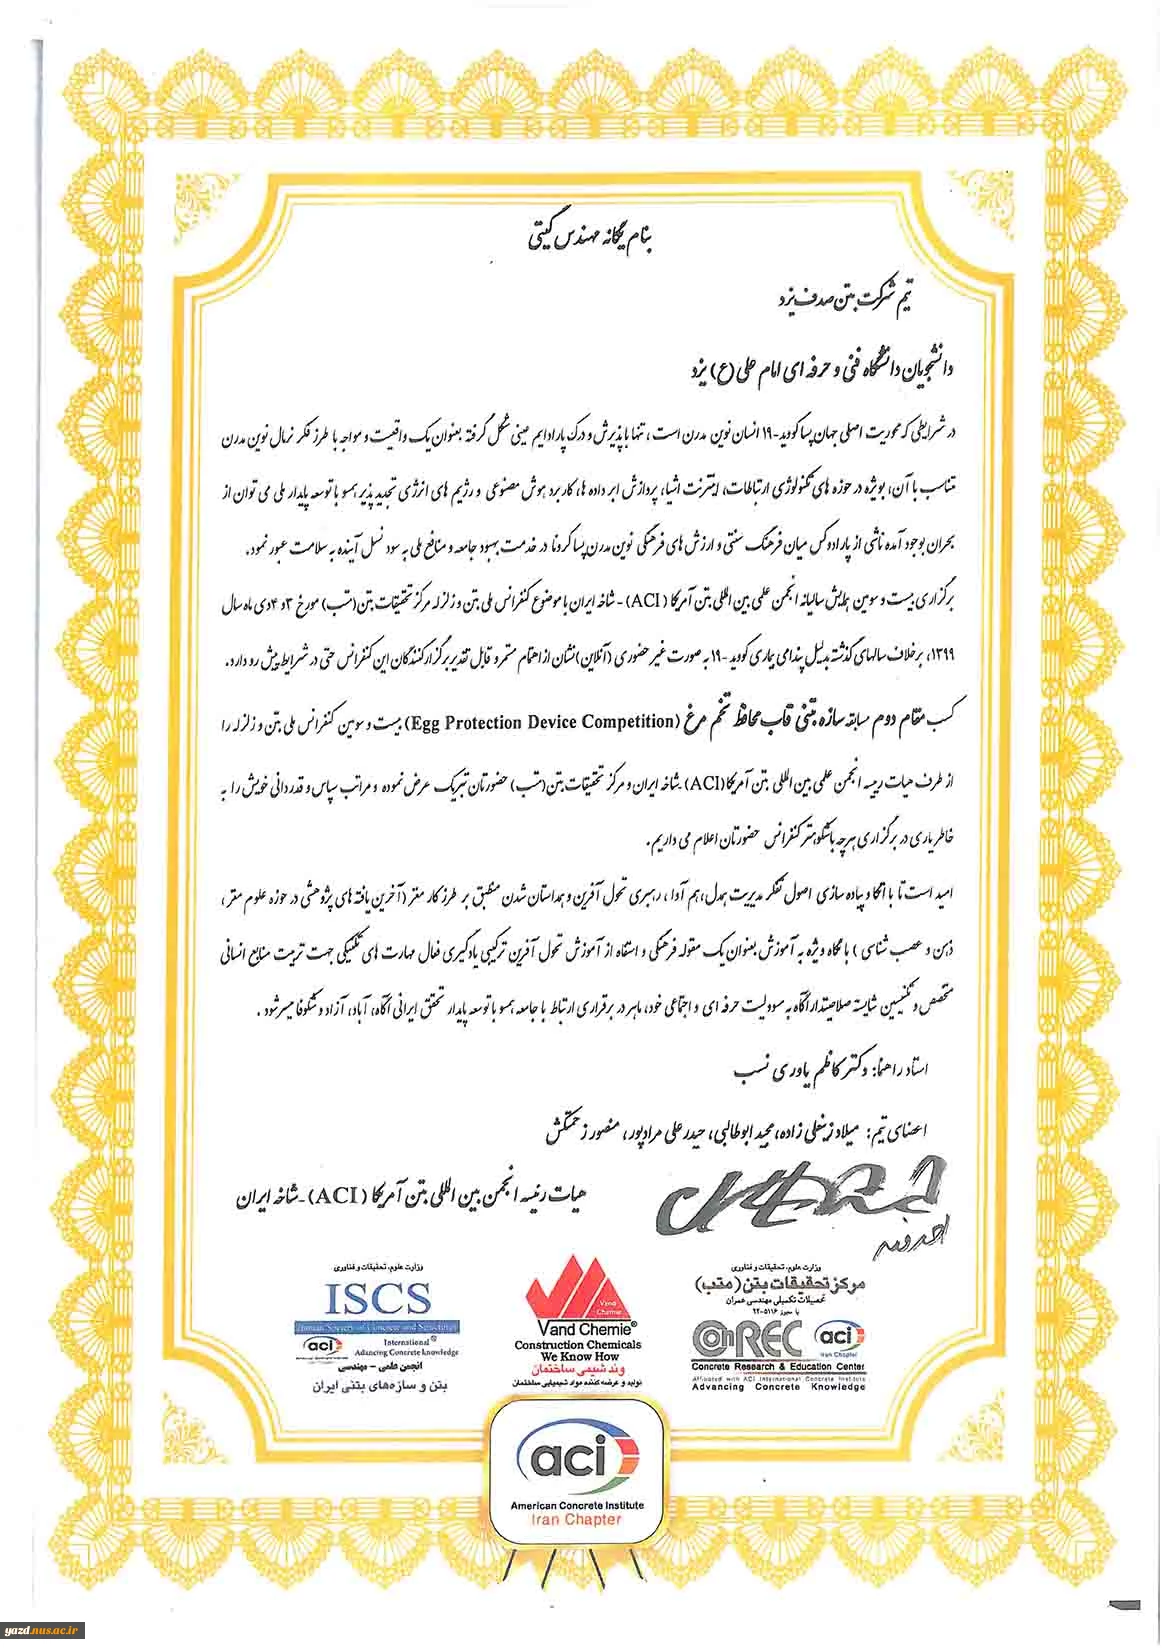 بنام یگانه مهندس گیتی
تیم شرکت بتن صدف یزد
دانشجویان دانشگاه فنی و حرفه ای امام علی (ع) یزد
در شرایطی که محوریت اصلی جهان پسا کووید-۱۹ انسان نوین مدرن است، تنها با پذیرش و درک پارادایم عینی شکل گرفته بعنوان یک واقعیت و مواجه با طرز فکر نرمال نوین مدرن
متناسب با آن، بویژه در حوزه های تکنولوژی ارتباطات، اینترنت اشیا، پردازش ابر داده ها، کاربرد هوش مصنوعی و رژیم های انرژی تجدید پذیر همسو با توسعه پایدار ملی می توان از
بحران بوجود آمده ناشی از پارادوکس میان فرهنگ سنتی و ارزش های فرهنگی نوین مدرن پسا کرونا در خدمت بهبود جامعه و منافع ملی به سود نسل آینده به سلامت عبور نمود.
برگزاری بیست و سومین همایش سالیانه انجمن علمی بین المللی بتن آمریکا (ACI) - شاخه ایران با موضوع کنفرانس ملی بتن و زلزله مرکز تحقیقات بتن (متب) مورخ ۳ و ۴ دی ماه سال
۱۳۹۹، برخلاف سالهای گذشته بدلیل پندامی بیماری کووید -۱۹ به صورت غیر حضوری (آنلاین) نشان از اهتمام مستمر و قابل تقدیر برگزارکنندگان این کنفرانس حتی در شرایط پیش رو دارد.
کسب مقام دوم مسابقه سازه بتنی قاب محافظ تخم مرغ (Egg Protection Device Competition) بیست و سومین کنفرانس ملی بتن و زلزله را
از طرف هیات رییسه انجمن علمی بین المللی بتن آمریکا (ACI) -شاخه ایران و مرکز تحقیقات بتن (متب) حضورتان تبریک عرض نموده و مراتب سپاس و قدردانی خویش را به
خاطر یاری در برگزاری هرچه باشکوهتر کنفرانس حضورتان اعلام می داریم.
امید است تا با اتکا و پیاده سازی اصول تفکر مدیریت همدل، هم آوا، رهبری تحول آفرین و همداستان شدن منطبق بر طرز کار مغز (آخرین یافته های پژوهشی در حوزه علوم مغز،
ذهن و عصب شناسی) با نگاه ویژه به آموزش بعنوان یک مقوله فرهنگی و استفاه از آموزش تحول آفرین ترکیبی یادگیری فعال مهارت های تکنیکی جهت تربیت منابع انسانی
متخصص و تکنیسین شایسته صلاحیتدار آگاه به مسوولیت حرفه ای و اجتماعی خود، ماهر در برقراری ارتباط با جامعه همسو با توسعه پایدار تحقق ایرانی آگاه، آباد، آزاد و شکوفا میسر شود.
استاد راهنما: دکتر کاظم یاوری نسب
اعضای تیم: میلاد زینعلی زاده، مجید ابوطالبی، حیدرعلی مرادپور، منصور زحمتکش
هیات رئیسه انجمن بین المللی بتن آمریکا (ACI) -شاخه ایران
وزارت علوم، تحقیقات و فناوری
مرکز تحقیقات بتن (متب)
تحصیلات تکمیلی مهندسی عمران
با مجوز ۵۱۱۶-۲۲
ConREC aci
Iran Chapter
Concrete Research & Education Center
Affiliated with ACI International Concrete Institute
Advancing Concrete Knowledge
Vand Chemie
Vand Chemie®
Construction Chemicals
We Know How
وند شیمی ساختمان
تولید و عرضه کننده مواد شیمیایی ساختمان
وزارت علوم، تحقیقات و فناوری
ISCS
Iranian Society of Concrete and Structures
aci International®
Advancing Concrete knowledge
انجمن علمی - مهندسی
بتن و سازه‌های بتنی ایران
aci
American Concrete Institute
Iran Chapter
yazd.nus.ac.ir